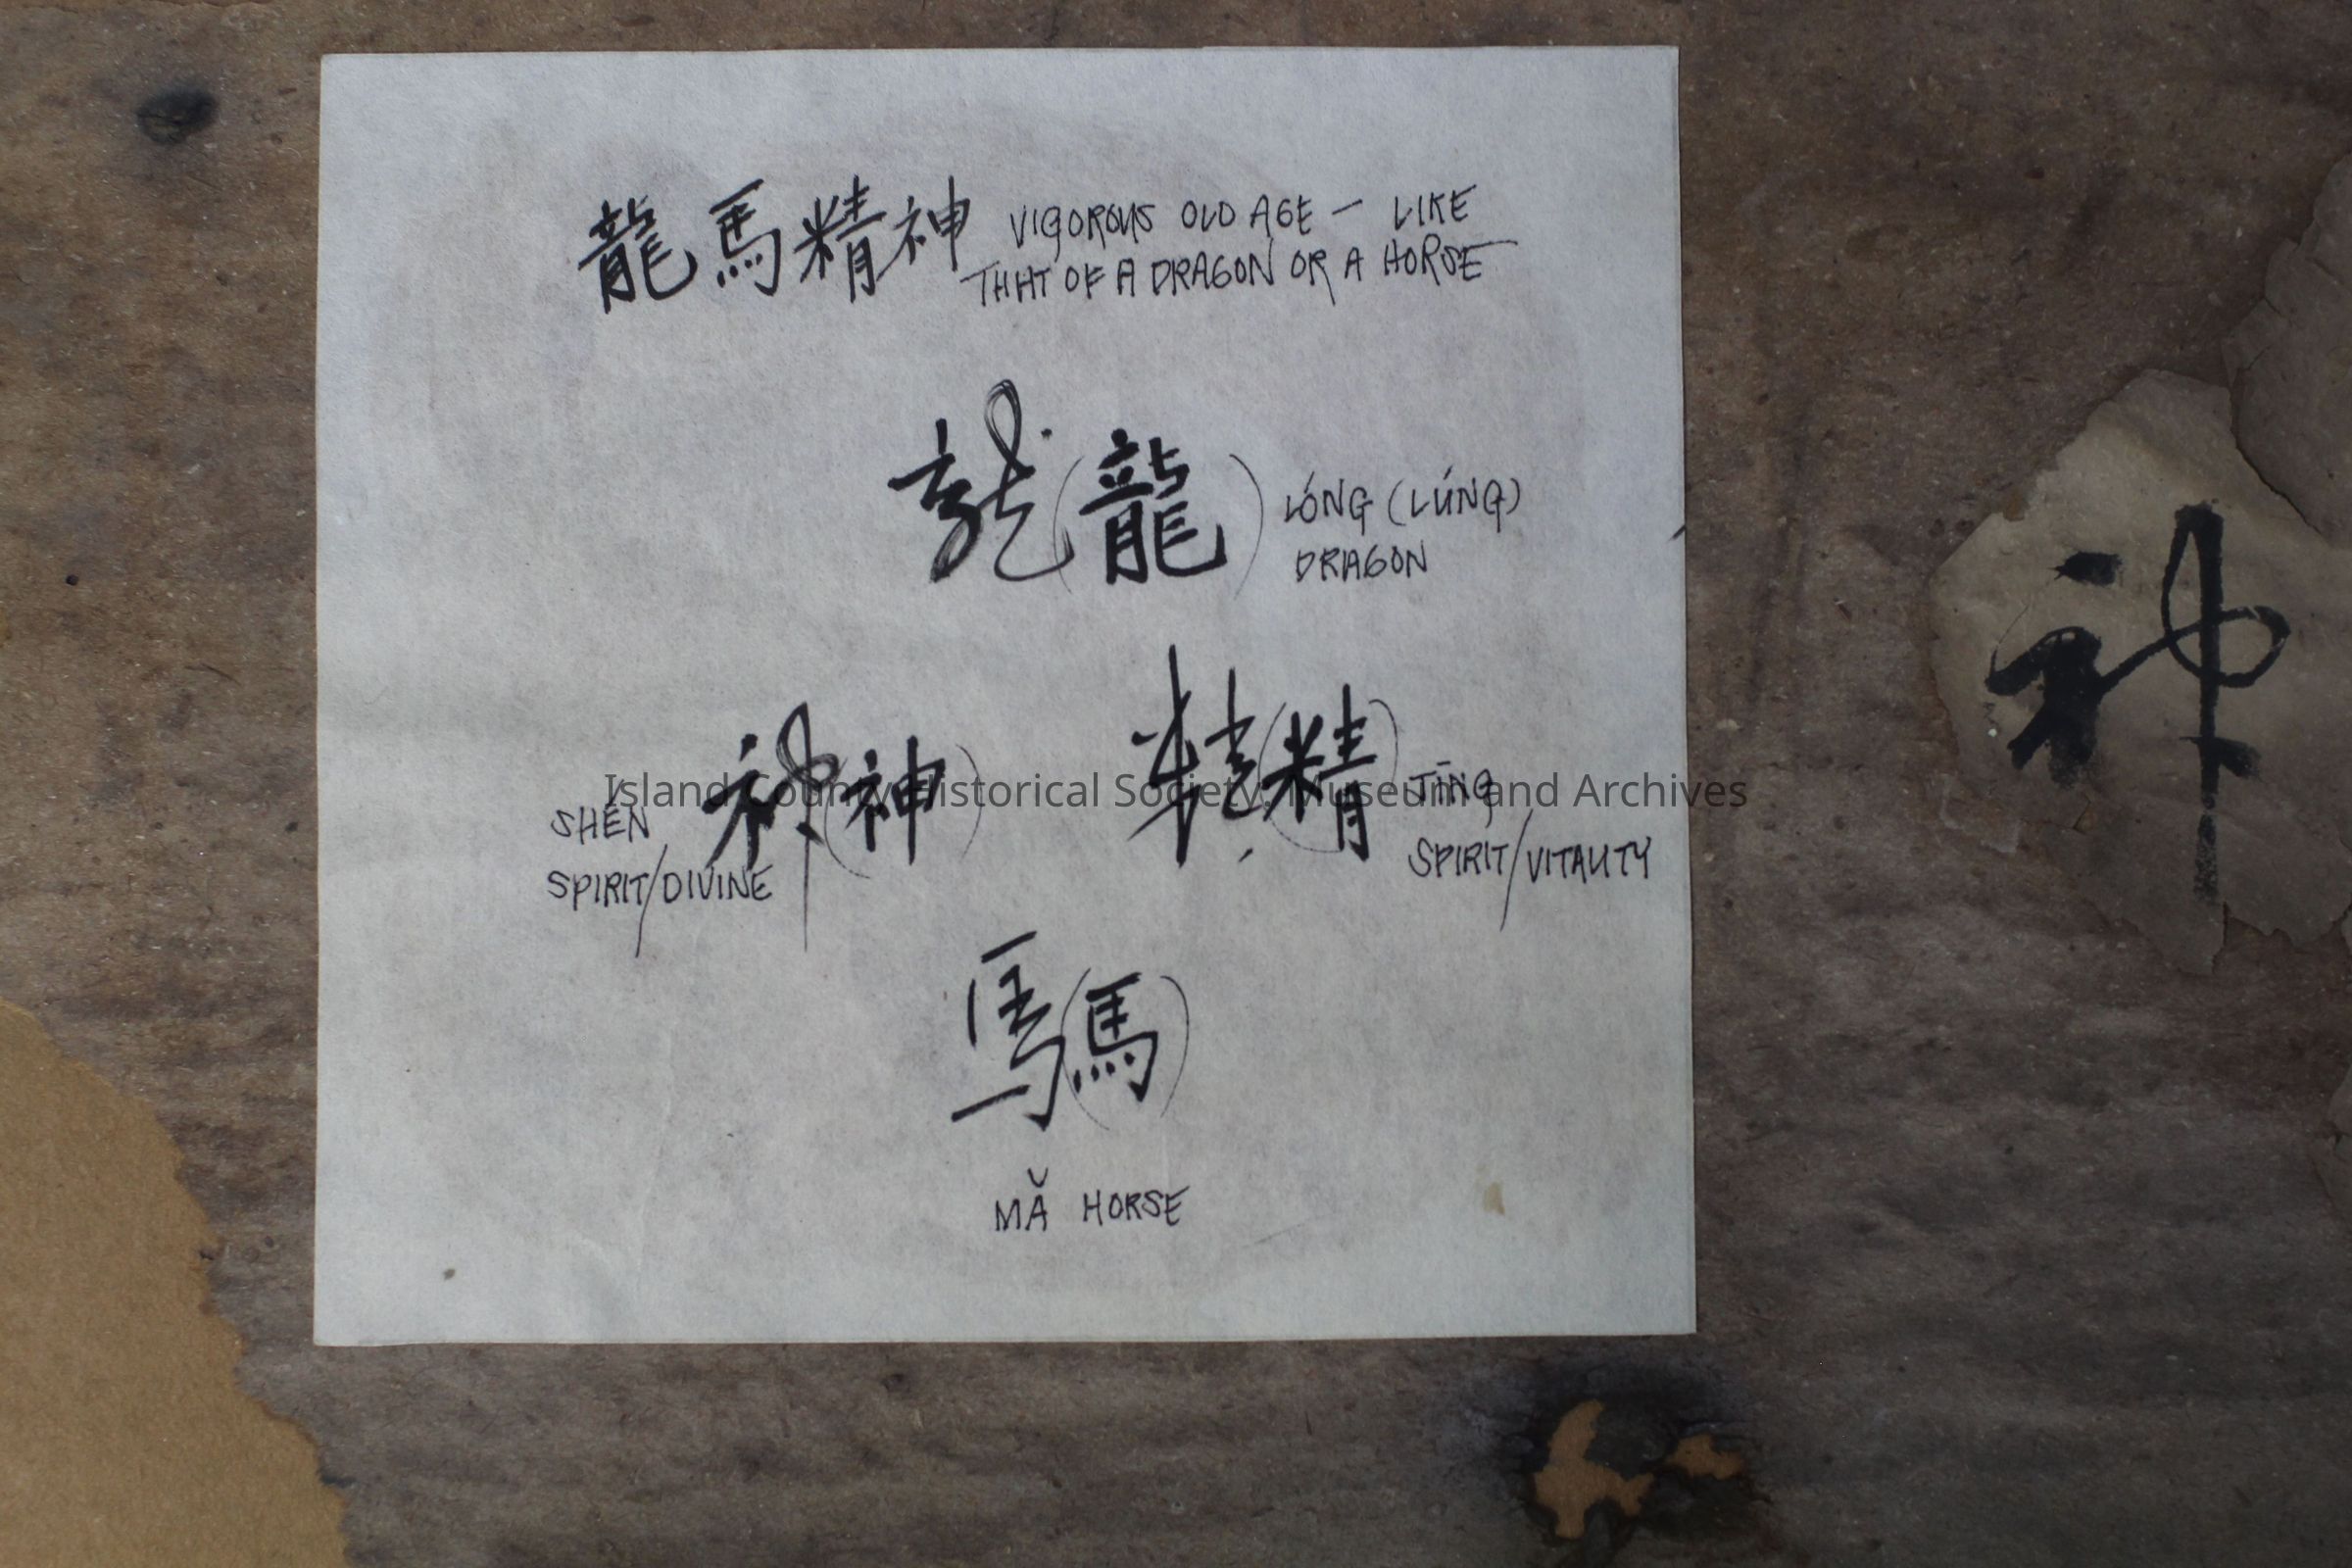 龍馬精神 VIGOROUS OLD AGE — LIKE
THAT OF A DRAGON OR A HORSE
龍 (龍) LÓNG (LÚNG)
DRAGON
神 (神) SHÉN
SPIRIT/DIVINE
精 (精) JĪNG
SPIRIT/VITALITY
馬 (馬)
MǍ HORSE
神
Island County Historical Society, Museum and Archives